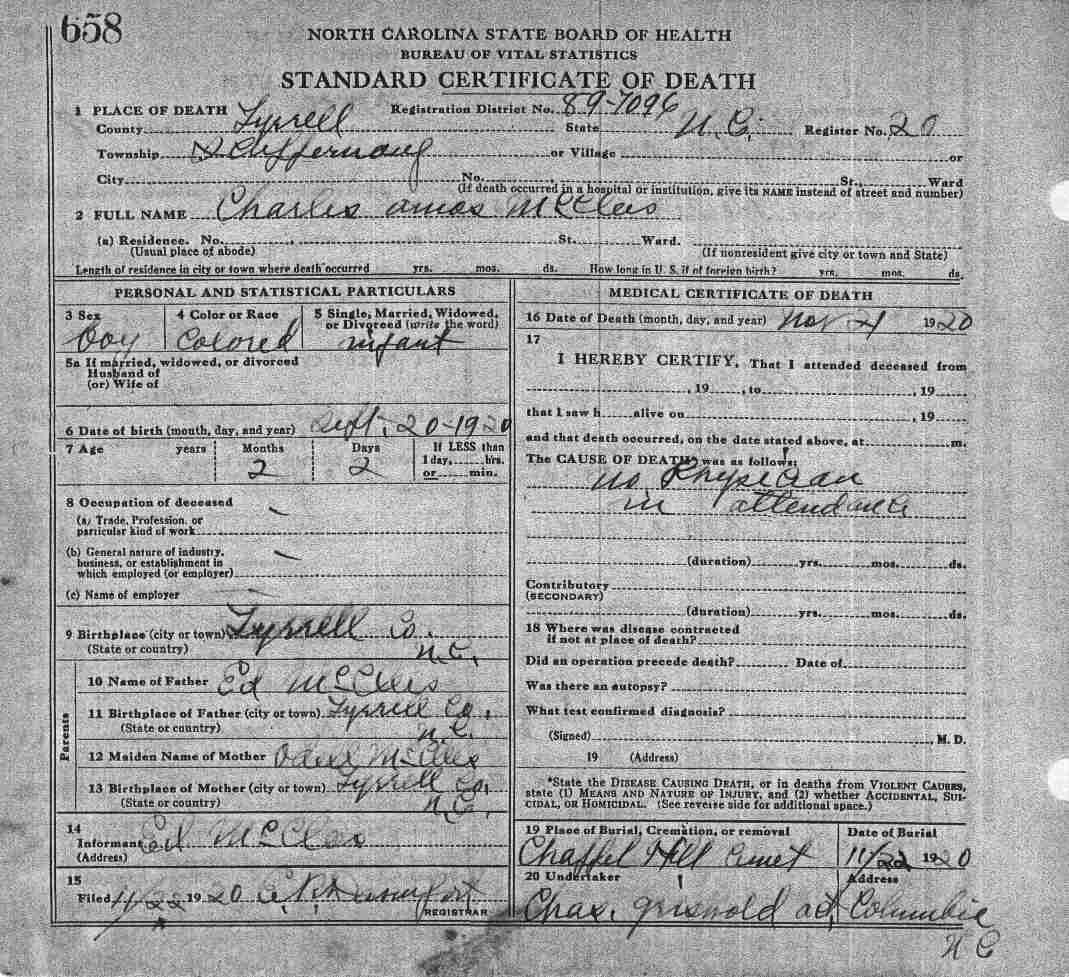 658
NORTH CAROLINA STATE BOARD OF HEALTH
BUREAU OF VITAL STATISTICS
STANDARD CERTIFICATE OF DEATH
1 PLACE OF DEATH Registration District No. 89-7096
County Tyrrell State N. C. Register No. 20
Township Scuppernong or Village or
City No. St., Ward
(If death occurred in a hospital or institution, give its NAME instead of street and number)
2 FULL NAME Charles amos McClees
(a) Residence. No. St. Ward.
(Usual place of abode) (If nonresident give city or town and State)
Length of residence in city or town where death occurred yrs. mos. ds. How long in U. S. if of foreign birth? yrs. mos. ds.
PERSONAL AND STATISTICAL PARTICULARS
3 Sex 4 Color or Race 5 Single, Married, Widowed, or Divorced (write the word)
Boy Colored infant
5a If married, widowed, or divorced
Husband of
(or) Wife of
6 Date of birth (month, day, and year) Sept. 20-1920
7 Age years Months Days If LESS than
1 day, hrs.
or min.
2 2
8 Occupation of deceased
(a) Trade, Profession, or
particular kind of work
(b) General nature of industry,
business, or establishment in
which employed (or employer)
(c) Name of employer
9 Birthplace (city or town) Tyrrell Co.
(State or country) N.C.
Parents
10 Name of Father Ed McClees
11 Birthplace of Father (city or town) Tyrrell Co.
(State or country) N.C.
12 Maiden Name of Mother McClees
13 Birthplace of Mother (city or town) Tyrrell Co.
(State or country) N.C.
14
Informant Ed McClees
(Address)
15
Filed 11/22 1920
REGISTRAR
MEDICAL CERTIFICATE OF DEATH
16 Date of Death (month, day, and year) Nov 21 1920
17
I HEREBY CERTIFY, That I attended deceased from
, 19 , to , 19
that I saw h alive on , 19
and that death occurred, on the date stated above, at m.
The CAUSE OF DEATH* was as follows:
no Physician
in attendance
(duration) yrs. mos. ds.
Contributory
(SECONDARY)
(duration) yrs. mos. ds.
18 Where was disease contracted
if not at place of death?
Did an operation precede death? Date of
Was there an autopsy?
What test confirmed diagnosis?
(Signed) , M. D.
19 (Address)
*State the DISEASE CAUSING DEATH, or in deaths from VIOLENT CAUSES,
state (1) MEANS AND NATURE OF INJURY, and (2) whether ACCIDENTAL, SUI-
CIDAL, OR HOMICIDAL. (See reverse side for additional space.)
19 Place of Burial, Cremation, or removal Date of Burial
Chappel Hill Cemet 11/22 1920
20 Undertaker Address
Chas. Griswold Columbia
N C